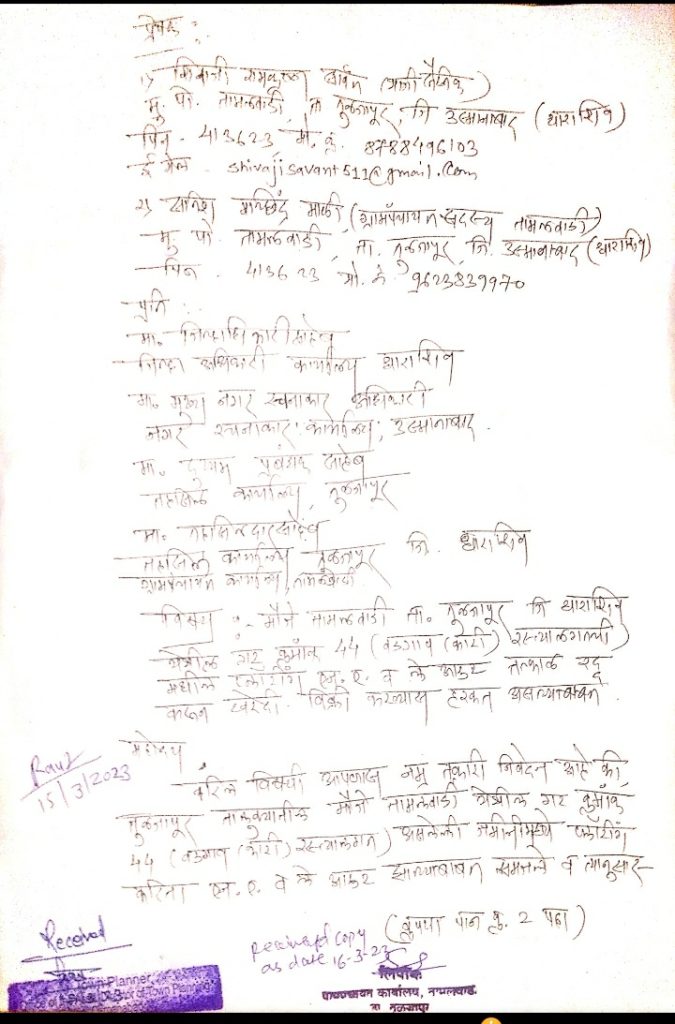 प्रेषक :
१) शिवाजी रामकृष्ण सावंत (माजी सैनिक)
मु. पो. तामलवाडी, ता तुळजापूर, जि उस्मानाबाद (धाराशिव)
पिन. 413623, मो. नं. 8788496103
ई मेल. shivajisavant511@gmail.com
२) मच्छिंद्र माळी (ग्रामपंचायत सदस्य तामलवाडी)
मु. पो. तामलवाडी, ता. तुळजापूर, जि. उस्मानाबाद (धाराशिव)
पिन. 413623 मो. नं. 9623839970
प्रति :
मा. जिल्हाधिकारी साहेब
जिल्हा अधिकारी कार्यालय धाराशिव
मा. मुख्य नगर रचनाकार अधिकारी
नगर रचनाकार कार्यालय, उस्मानाबाद.
मा. दुय्यम साहेब
तहसिल कार्यालय, तुळजापूर
मा. तहसिलदार साहेब
तहसिल कार्यालय तुळजापूर जि. धाराशिव
ग्रामपंचायत कार्यालय, तामलवाडी
विषय :- मौजे तामलवाडी ता. तुळजापूर जि धाराशिव
येथील गट क्रमांक 44 (वडगाव (काटी) रस्त्यालगतची)
मधील प्लॉटींग एन. ए. व ले आऊट तत्काळ रद्द
करून खरेदी विक्री करण्यास हरकत असल्याबाबत.
महोदय,
वरिल विषयी आपणास नम्र तक्रारी निवेदन आहे की,
तुळजापूर तालुक्यातील मौजे तामलवाडी येथील गट क्रमांक
44 (वडगाव (काटी) रस्त्यालगत) असलेली जमीनीमध्ये प्लॉटींग
करिता एन. ए. व ले आऊट झाल्याबाबत समजले व त्यानुसार
(कृपया पान क्र. 2 पहा)
15/3/2023
Received
Received copy
as date 16-3-23
लिपीक
कार्यालय,
ता तुळजापूर
Town Planner